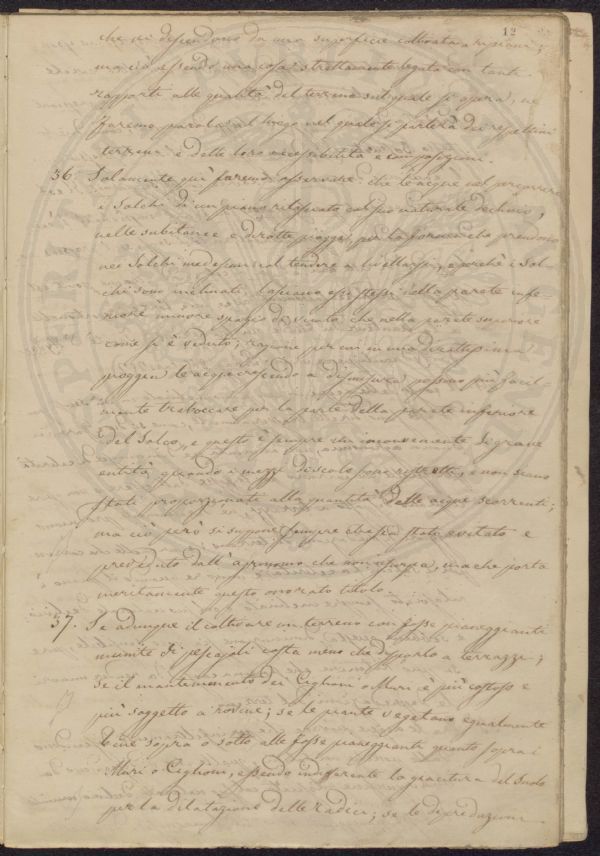 12
che si disperdono da una superficie coltivata a ripiani;
ma ciò essendo una cosa strettamente legata con tanti
rapporti alle qualità del terreno sul quale si opera, ne
faremo parola al luogo nel quale si parlerà dei rispettivi
terreni e delle loro accessibilità e composizioni.
36. Solamente qui faremo osservare che le acque nel percorrere
i Solchi di un piano rilasciato col suo naturale declivio,
nelle subitanee e dirotte piogge, per la forza che prendono
nei Solchi medesimi col tendere a livellarsi, e poichè i Sol-
chi sono inclinati, lasciano essi stessi nella parete infe-
riore minore spazio di vuoto che nella parete superiore
come si è veduto; ragione per cui in una dirottissima
pioggia le acque crescendo a dismisura possono più facil-
mente traboccare per la parte della parete inferiore
del Solco, e questo è sempre un inconveniente di grave
entità quando i mezzi di scolo sono ristretti, e non siano
stati proporzionati alla quantità delle acque scorrenti;
ma ciò però si suppone sempre che sia stato evitato e
preveduto dall'agronomo che non usurpa, ma che porta
meritamente questo onorato titolo.
37. Se adunque il coltivare un terreno con fosse pianeggianti
munite di pescajoli costa meno che disporlo a terrazzi;
se il mantenimento dei Ciglioni o Muri è più costoso e
più soggetto a rovine; se le piante vegetano egualmente
bene sopra o sotto alle fosse pianeggianti quanto sopra i
Muri o Ciglioni, essendo indifferente la giacitura del Suolo
per la dilatazione delle radici; se le depredazioni